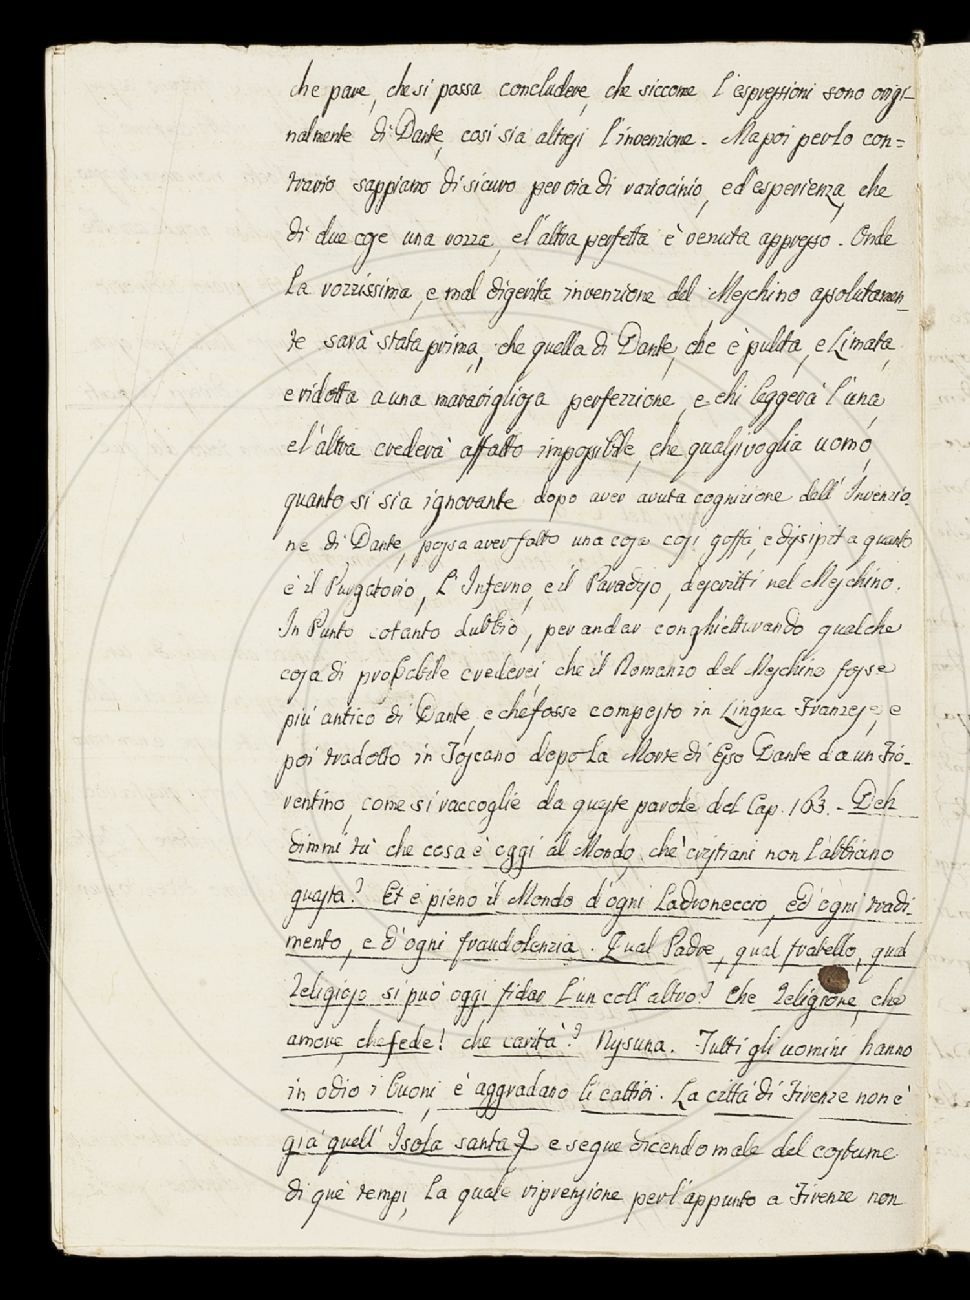 che pare, che si possa concludere, che siccome l'espressioni sono origi-
nalmente di Dante, così sia altresi l'invenzione. Ma poi per lo con=
trario sappiamo di sicuro per via di raziocinio, e d'esperienza, che
di due cose una rozza, e l'altra perfetta è venuta appresso. Onde
la rozzissima, e mal digerita invenzione del Meschino assolutamen-
te sarà stata prima, che quella di Dante, che è pulita, e limata,
e ridotta a una maravigliosa perfezzione, e chi leggerà l'una,
e l'altra crederà affatto impossibile, che qualsivoglia uomo,
quanto si sia ignorante dopo aver avuta cognizione dell'Invenzio-
ne di Dante, possa aver fatto una cosa così goffa, e disipita quanto
è il Purgatorio, L'Inferno, e il Paradiso, descritti nel Meschino.
In Punto cotanto dubbio, per andar conghietturando qualche
cosa di probabile crederei, che il Romanzo del Meschino fosse
più antico di Dante, e che fosse composto in Lingua Franzese, e
poi tradotto in Toscano dopo la Morte di Esso Dante da un Fio-
rentino, come si raccoglie da queste parole del Cap. 163. - Deh
dimmi tù che cosa è oggi al Mondo, che cristiani non l'abbiano
guasta? Et è pieno il Mondo d'ogni Ladroneccio, ed ogni tradi-
mento, e d'ogni fraudolenzia. Qual Padre, qual fratello, qual
Religioso si può oggi fidar l'un coll'altro? Che Religione, che
amore, che fede! che carità? Nisuna. Tutti gli uomini hanno
in odio i buoni, è aggradano li cattivi. La città di Firenze non è
già quell'Isola santa e segue dicendo male del costume
di que' tempi, la quale riprensione per l'appunto a Firenze non